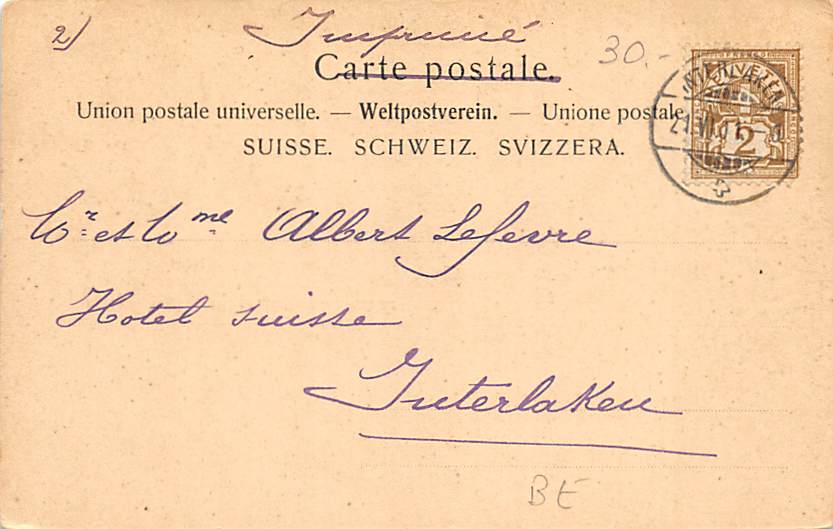 2)
Imprimé
30.-
Carte postale.
Union postale universelle. — Weltpostverein. — Unione postale
SUISSE. SCHWEIZ. SVIZZERA.
INTERLAKEN
2
Mr et Mme Albert Lefevre
Hotel Suisse
Interlaken
BE